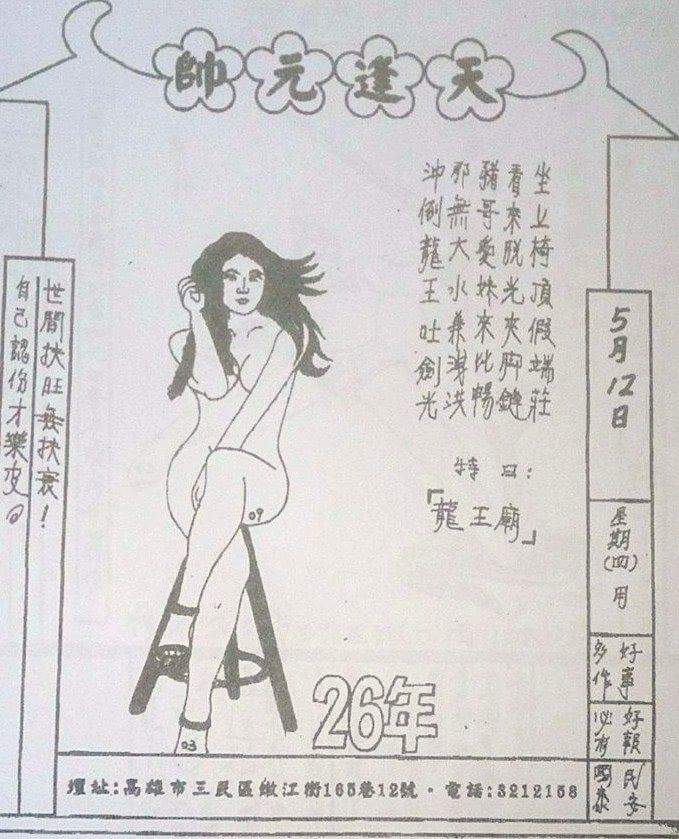 天逢元帥
坐上椅頂假端莊
看來脫光夾脚鏈
豬哥愛妹來比暢
邪無大水兼洩洪
沖倒龍王吐劍光
特曰：
「龍王廟」
5月12日
星期(四)用
好事
多作
好報
必有
民安
國泰
世間扶旺無扶衰！
自己認份才樂
09
03
26年
壇址:高雄市三民區嫩江街165巷12號・電話:3212158